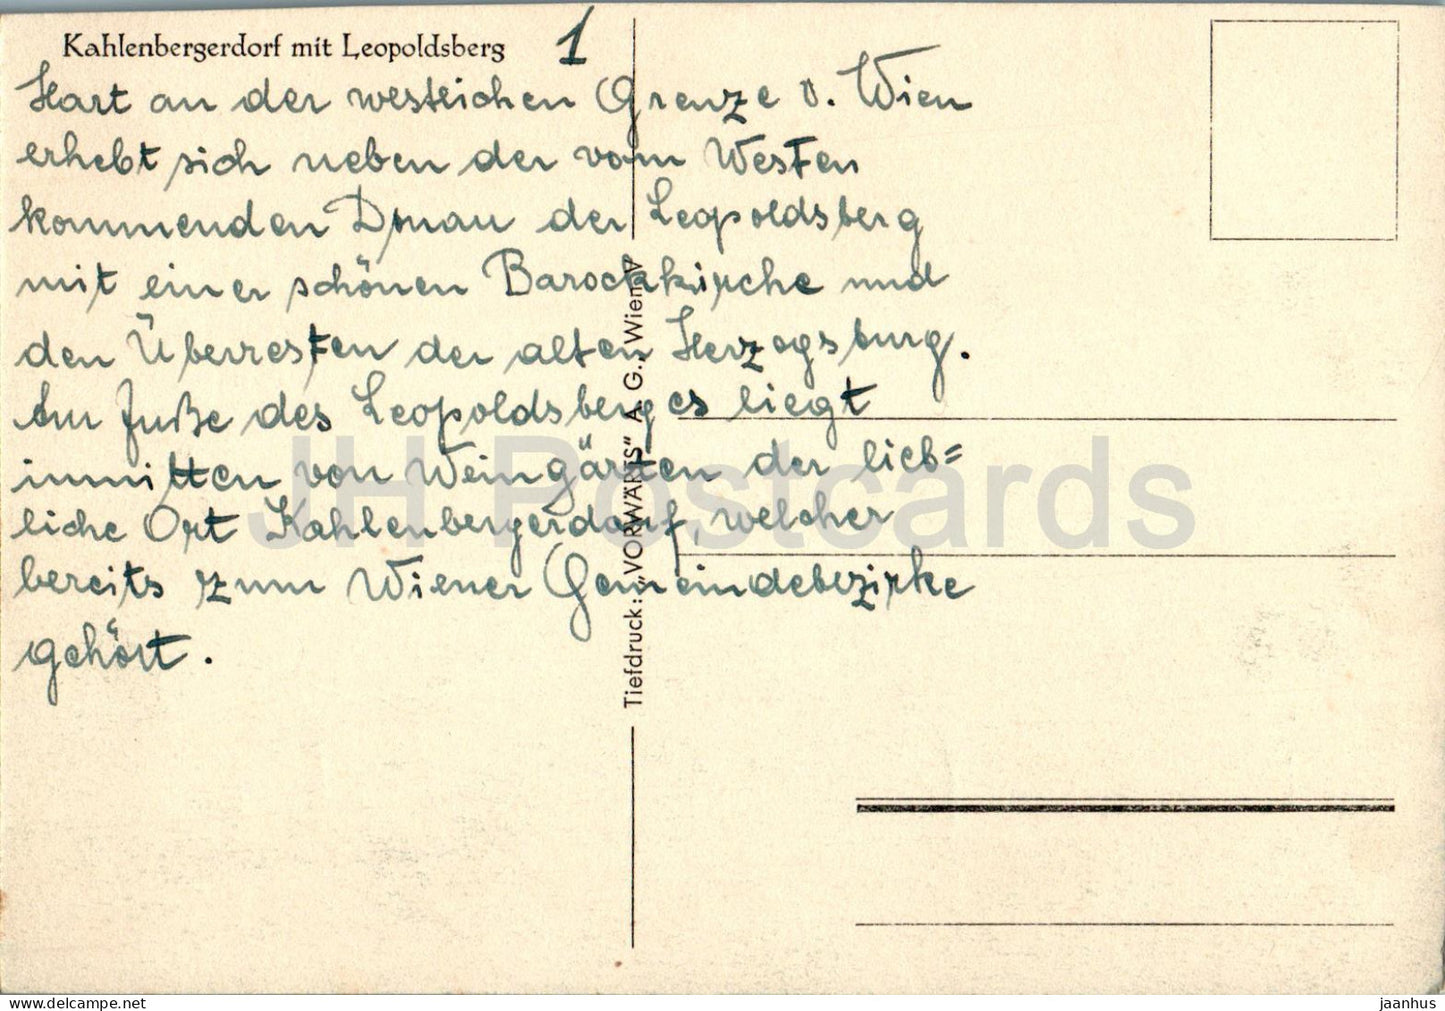 Kahlenbergerdorf mit Leopoldsberg
1
Hart an der westlichen Grenze v. Wien
erhebt sich neben der vom Westen
kommenden Donau der Leopoldsberg
mit einer schönen Barockkirche und
den Überresten der alten Herzogsburg.
Am Fuße des Leopoldsberges liegt
inmitten von Weingärten der lieb=
liche Ort Kahlenbergerdorf, welcher
bereits zum Wiener Gemeindebezirke
gehört.
Tiefdruck: „VORWÄRTS" A. G., Wien V
JH Postcards
delcampe.net
jaanhus